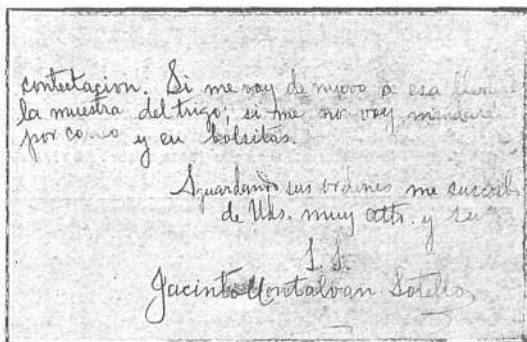 contestacion. Si me voy de nuevo a esa llevaré
la muestra del trigo; si me no voy, mandaré
por correo y en bolsitas.
Aguardando sus ordenes me suscribo
de Uds. muy atto. y su
S. S.
Jacinto Montalvan Sotello